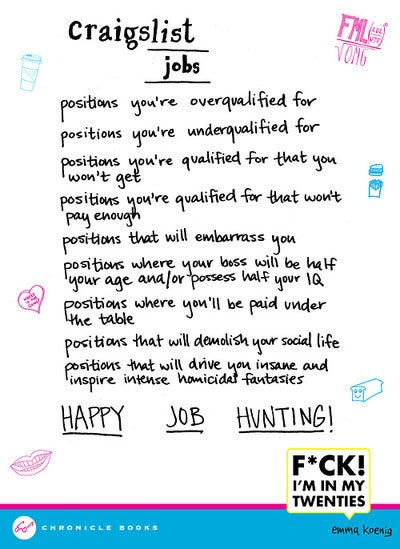 craigslist
jobs
FML
VOMG
positions you're overqualified for
positions you're underqualified for
positions you're qualified for that you
won't get
positions you're qualified for that won't
pay enough
positions that will embarrass you
positions where your boss will be half
your age and/or possess half your IQ
positions where you'll be paid under
the table
positions that will demolish your social life
positions that will drive you insane and
inspire intense homicidal fantasies
HAPPY JOB HUNTING!
F*CK!
I'M IN MY
TWENTIES
CHRONICLE BOOKS
emma koenig